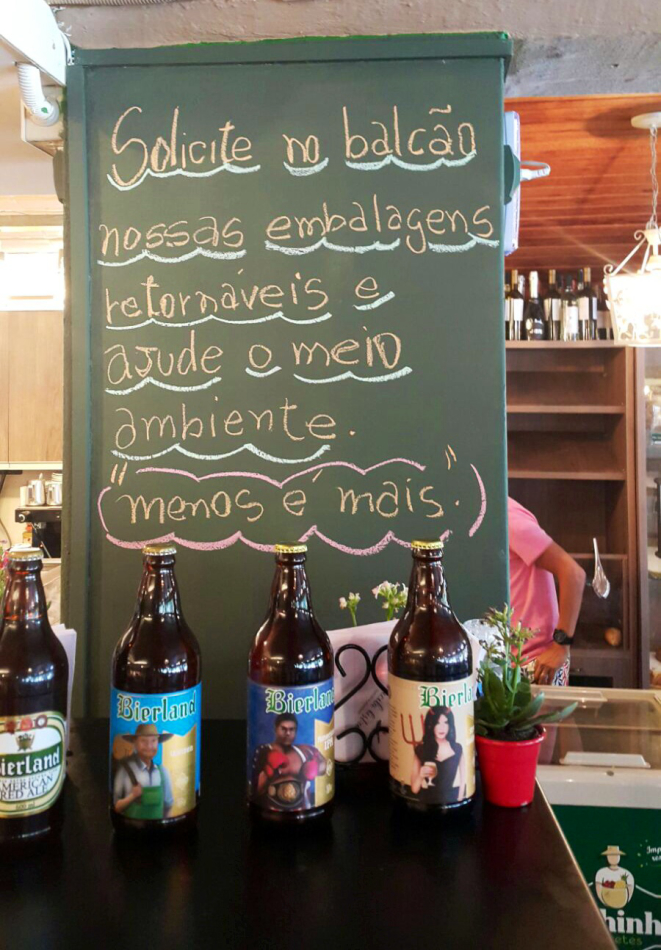 Solicite no balcão
nossas embalagens
retornáveis e
ajude o meio
ambiente.
"menos é mais."
Bierland
AMERICAN
RED ALE
Bierland
Bierland
Bierland